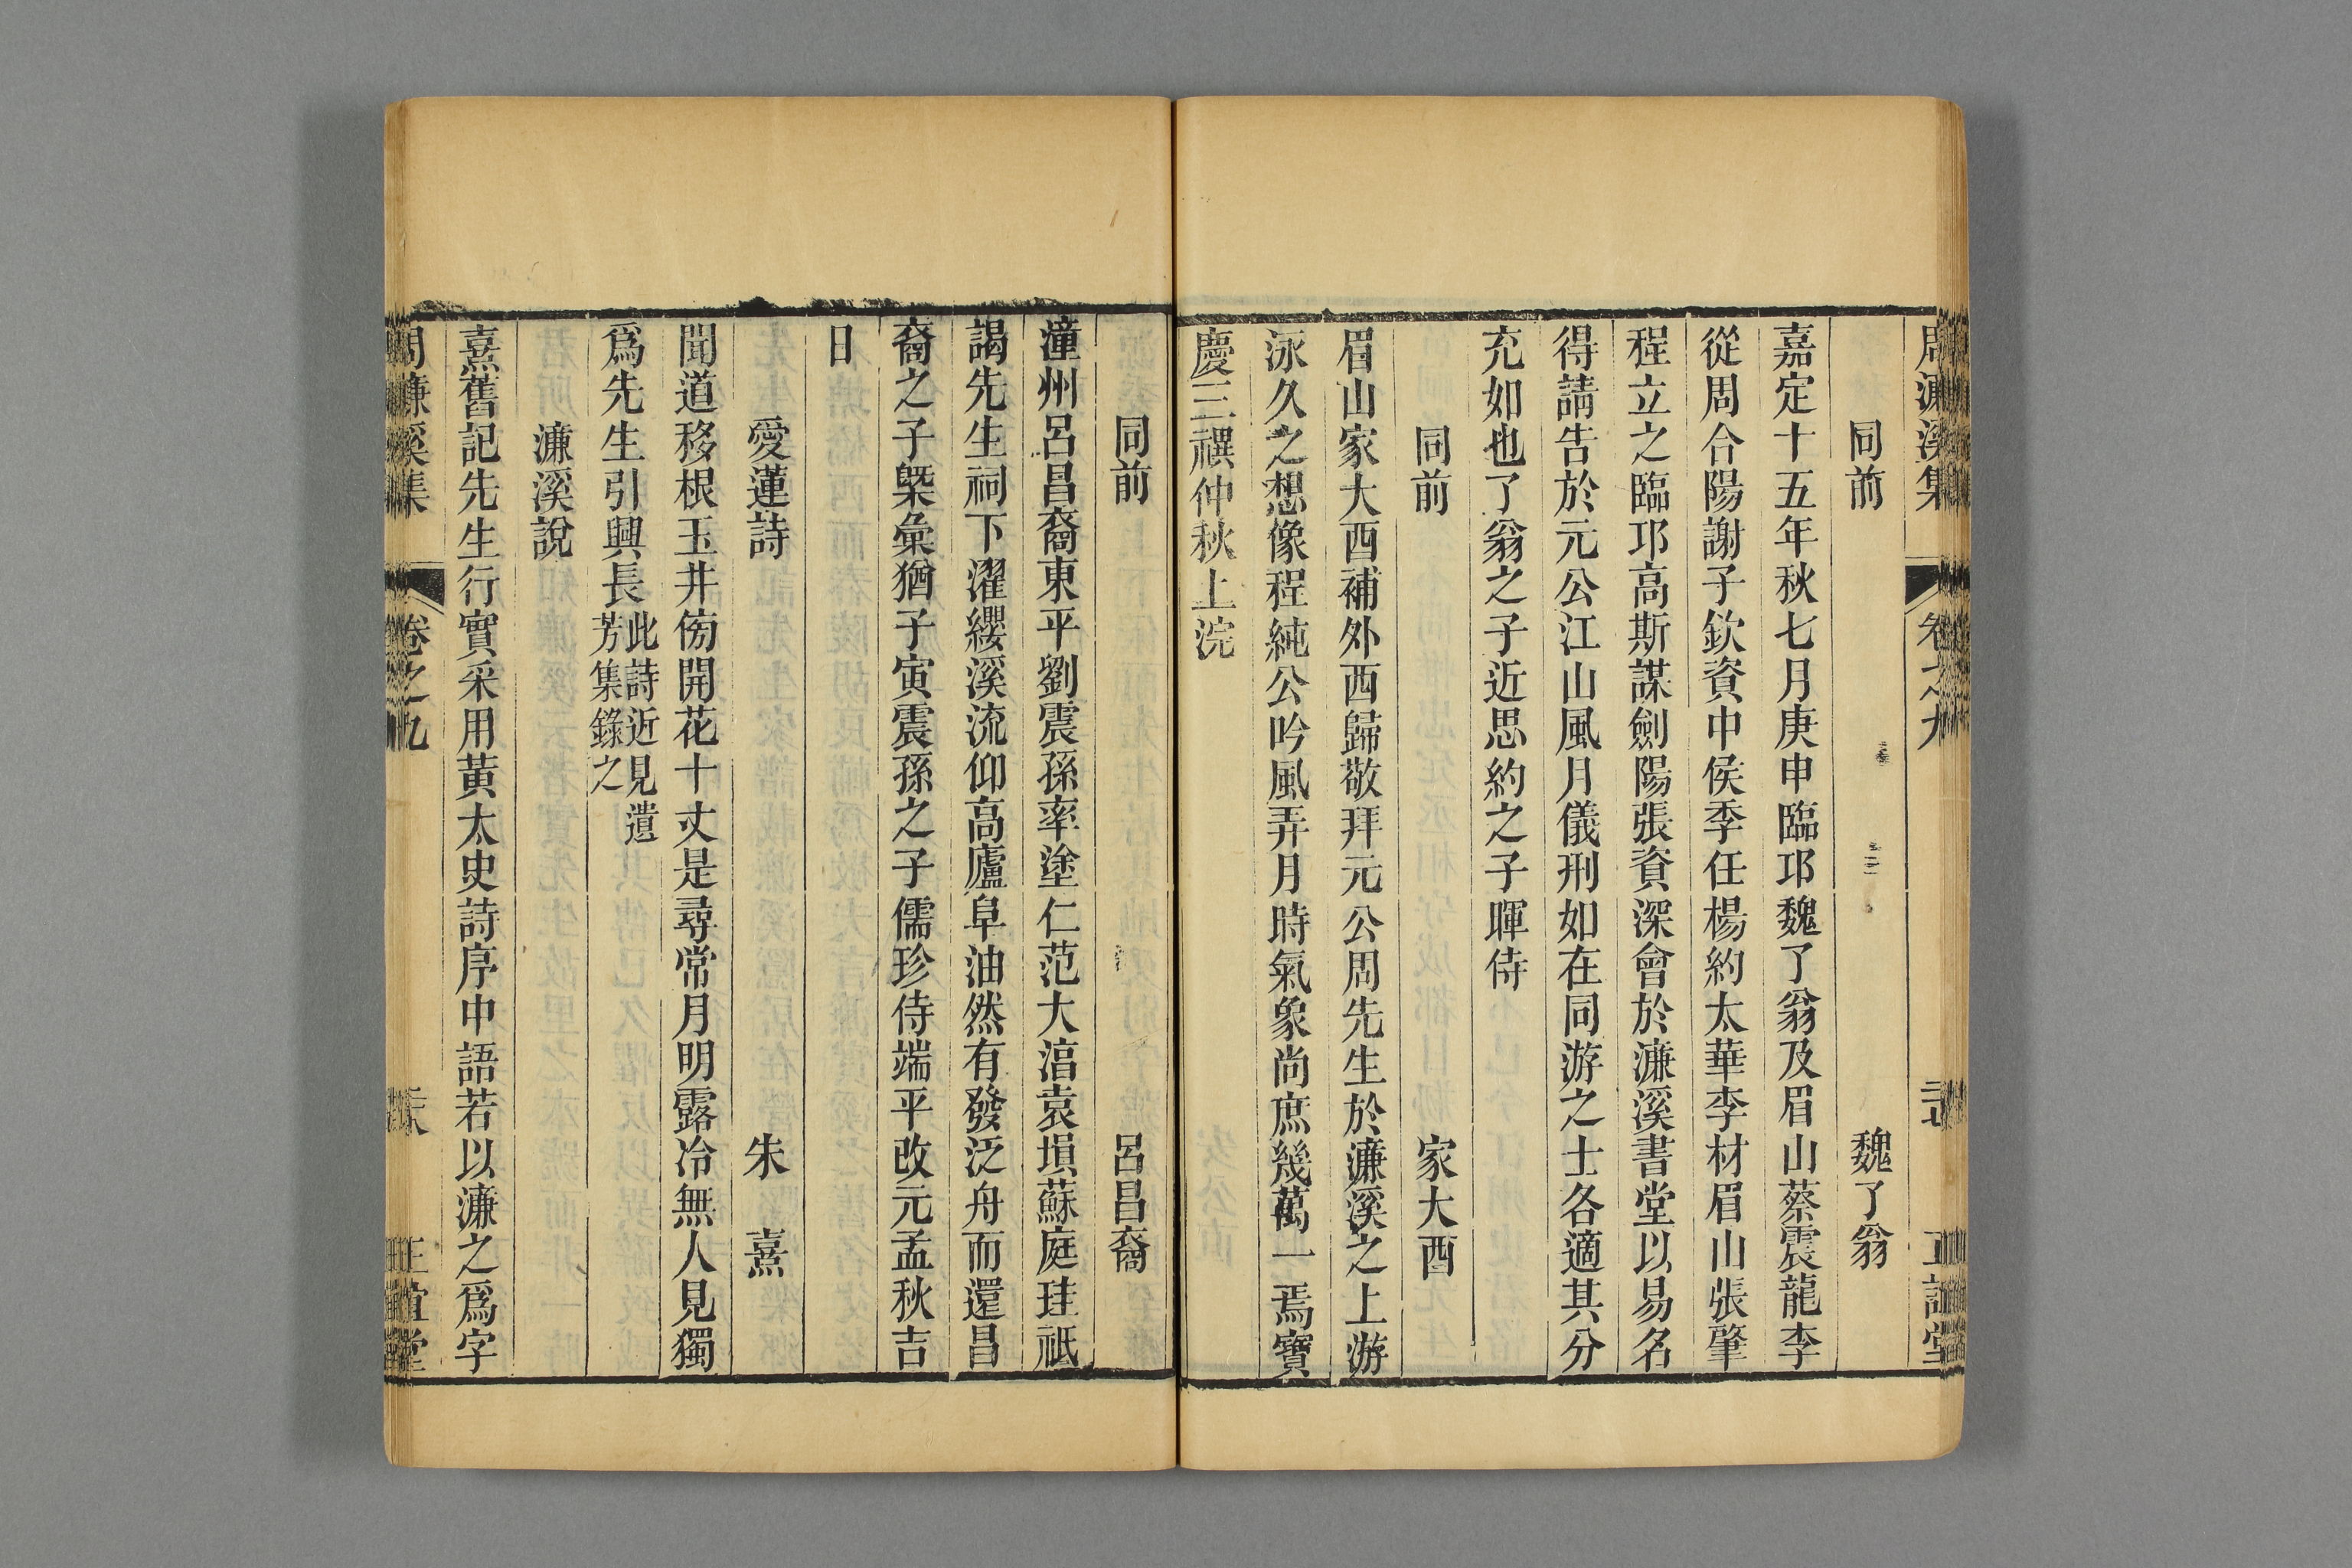 周濂溪集 卷之九
同前 魏了翁
嘉定十五年秋七月庚申臨邛魏了翁及眉山蔡震龍李
從周合陽謝子欽資中侯季任楊約太華李材眉山張肇
程立之臨邛高斯謀劍陽張資深會於濂溪書堂以易名
得請告於元公江山風月儀刑如在同游之士各適其分
充如也了翁之子近思約之子暉侍
同前 家大酉
眉山家大酉補外西歸敬拜元公周先生於濂溪之上游
泳久之想像程純公吟風弄月時氣象尚庶幾萬一焉寶
慶三禩仲秋上浣
同前 呂昌裔
潼州呂昌裔東平劉震孫率塗仁范大淯袁塤蘇庭珪祇
謁先生祠下濯纓溪流仰高廬阜油然有發泛舟而還昌
裔之子槼彙猶子寅震孫之子儒珍侍端平改元孟秋吉
日
愛蓮詩 朱熹
聞道移根玉井傍開花十丈是尋常月明露冷無人見獨
爲先生引興長此詩近見遺
芳集錄之
濂溪說
熹舊記先生行實采用黃太史詩序中語若以濂之爲字
周濂溪集 卷之九 正誼堂